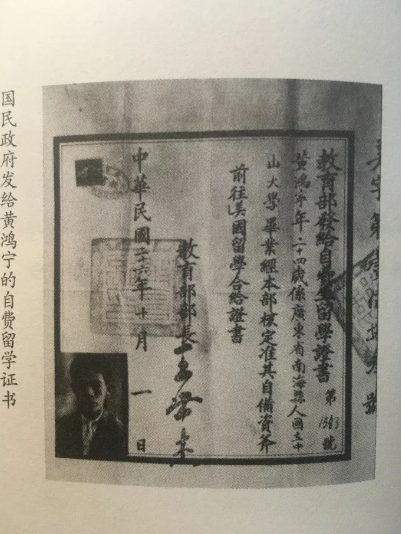 教育部發給自費生留學證書 第 號
黃鴻寧年二十四歲係廣東省南海縣人國立中
山大學畢業經本部核定准其自備資斧
前往美國留學合給證書
教育部部長 王世杰
中華民國二十六年十月一日
国民政府发给黄鸿宁的自费留学证书